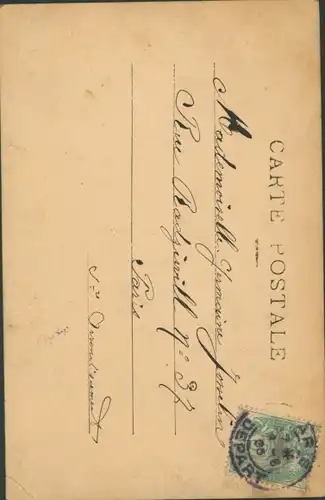 CARTE POSTALE
Mademoiselle Germaine
Rue Radziwill nº 37
Paris
1er Arrondissement
DEPART